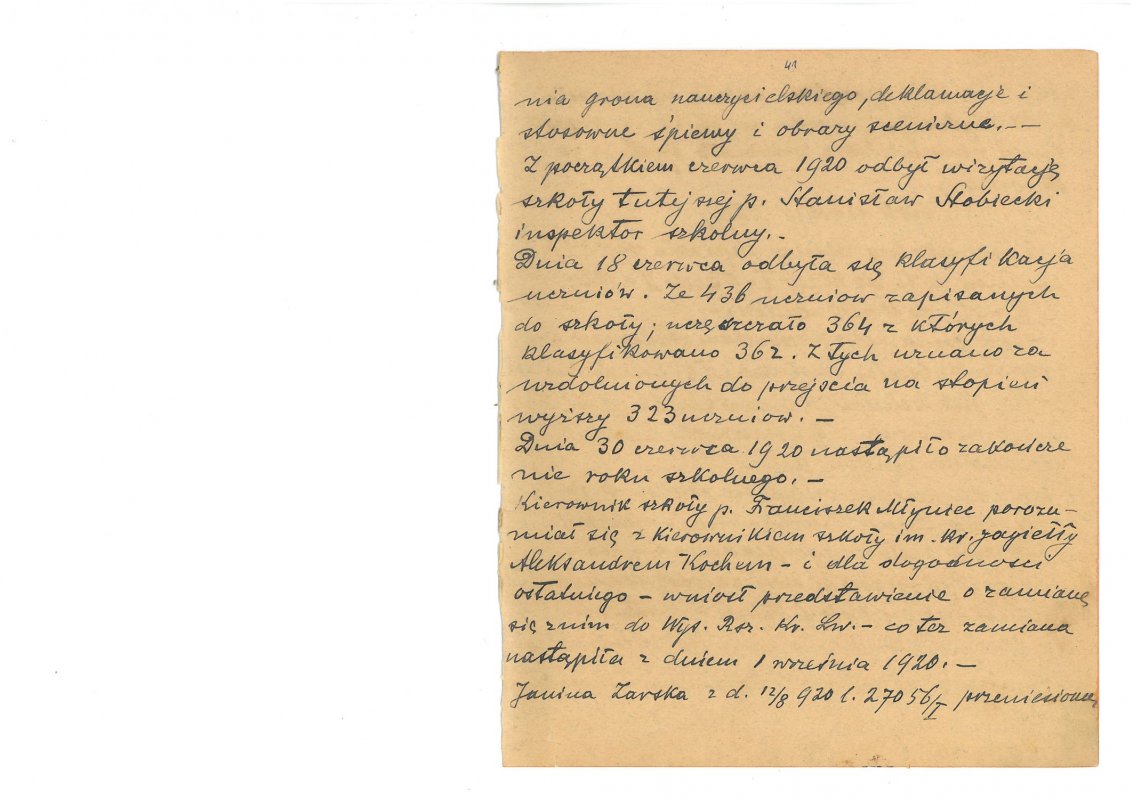 41
nia grona nauczycielskiego, deklamacje i
stosowne śpiewy i obrazy sceniczne. --
Z początkiem czerwca 1920 odbył wizytację
szkoły tutejszej p. Stanisław Stobiecki
inspektor szkolny. -
Dnia 18 czerwca odbyła się klasyfikacja
uczniów. Ze 436 uczniow zapisanych
do szkoły; uczęszczało 364 z których
klasyfikowano 362. Z tych uznano za
uzdolnionych do przejscia na stopień
wyższy 323 uczniow. -
Dnia 30 czerwca 1920 nastąpiło zakończe
nie roku szkolnego. -
Kierownik szkoły p. Franciszek Młyniec porozu-
miał się z kierownikiem szkoły im. kr. Jagiełły
Aleksandrem Kochem - i dla dogodnosci
ostatniego - wniosł przedstawienie o zamianę
się z nim do Wys. Rsz. Kr. Lw. - co też zamiana
nastąpiła z dniem 1 września 1920. -
Janina Zarska z d. 12/8 920 l. 27056/I przeniesiona